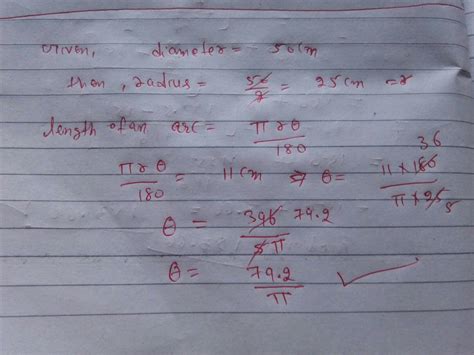 Given, diameter = 50cm
then, radius = 50/2 = 25cm = r
length of an arc = πrθ/180
πrθ/180 = 11cm ⇒ θ = 11×180/π×25 36 5
θ = 396/5π 79.2
θ = 79.2/π ✓